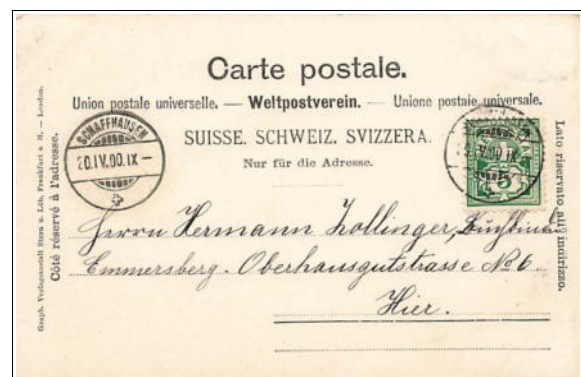 Carte postale.
Union postale universelle. — Weltpostverein. — Unione postale universale.
SUISSE. SCHWEIZ. SVIZZERA.
Nur für die Adresse.
SCHAFFHAUSEN
20.IV.00.IX –
5
Herrn Hermann Zollinger,
Emmersberg - Oberhausgutstrasse No 6
Hier.
Côté réservé à l'adresse.
Graph. Verlagsanstalt Stern u. Löb, Frankfurt a. M. — London.
Lato riservato all' indirizzo.